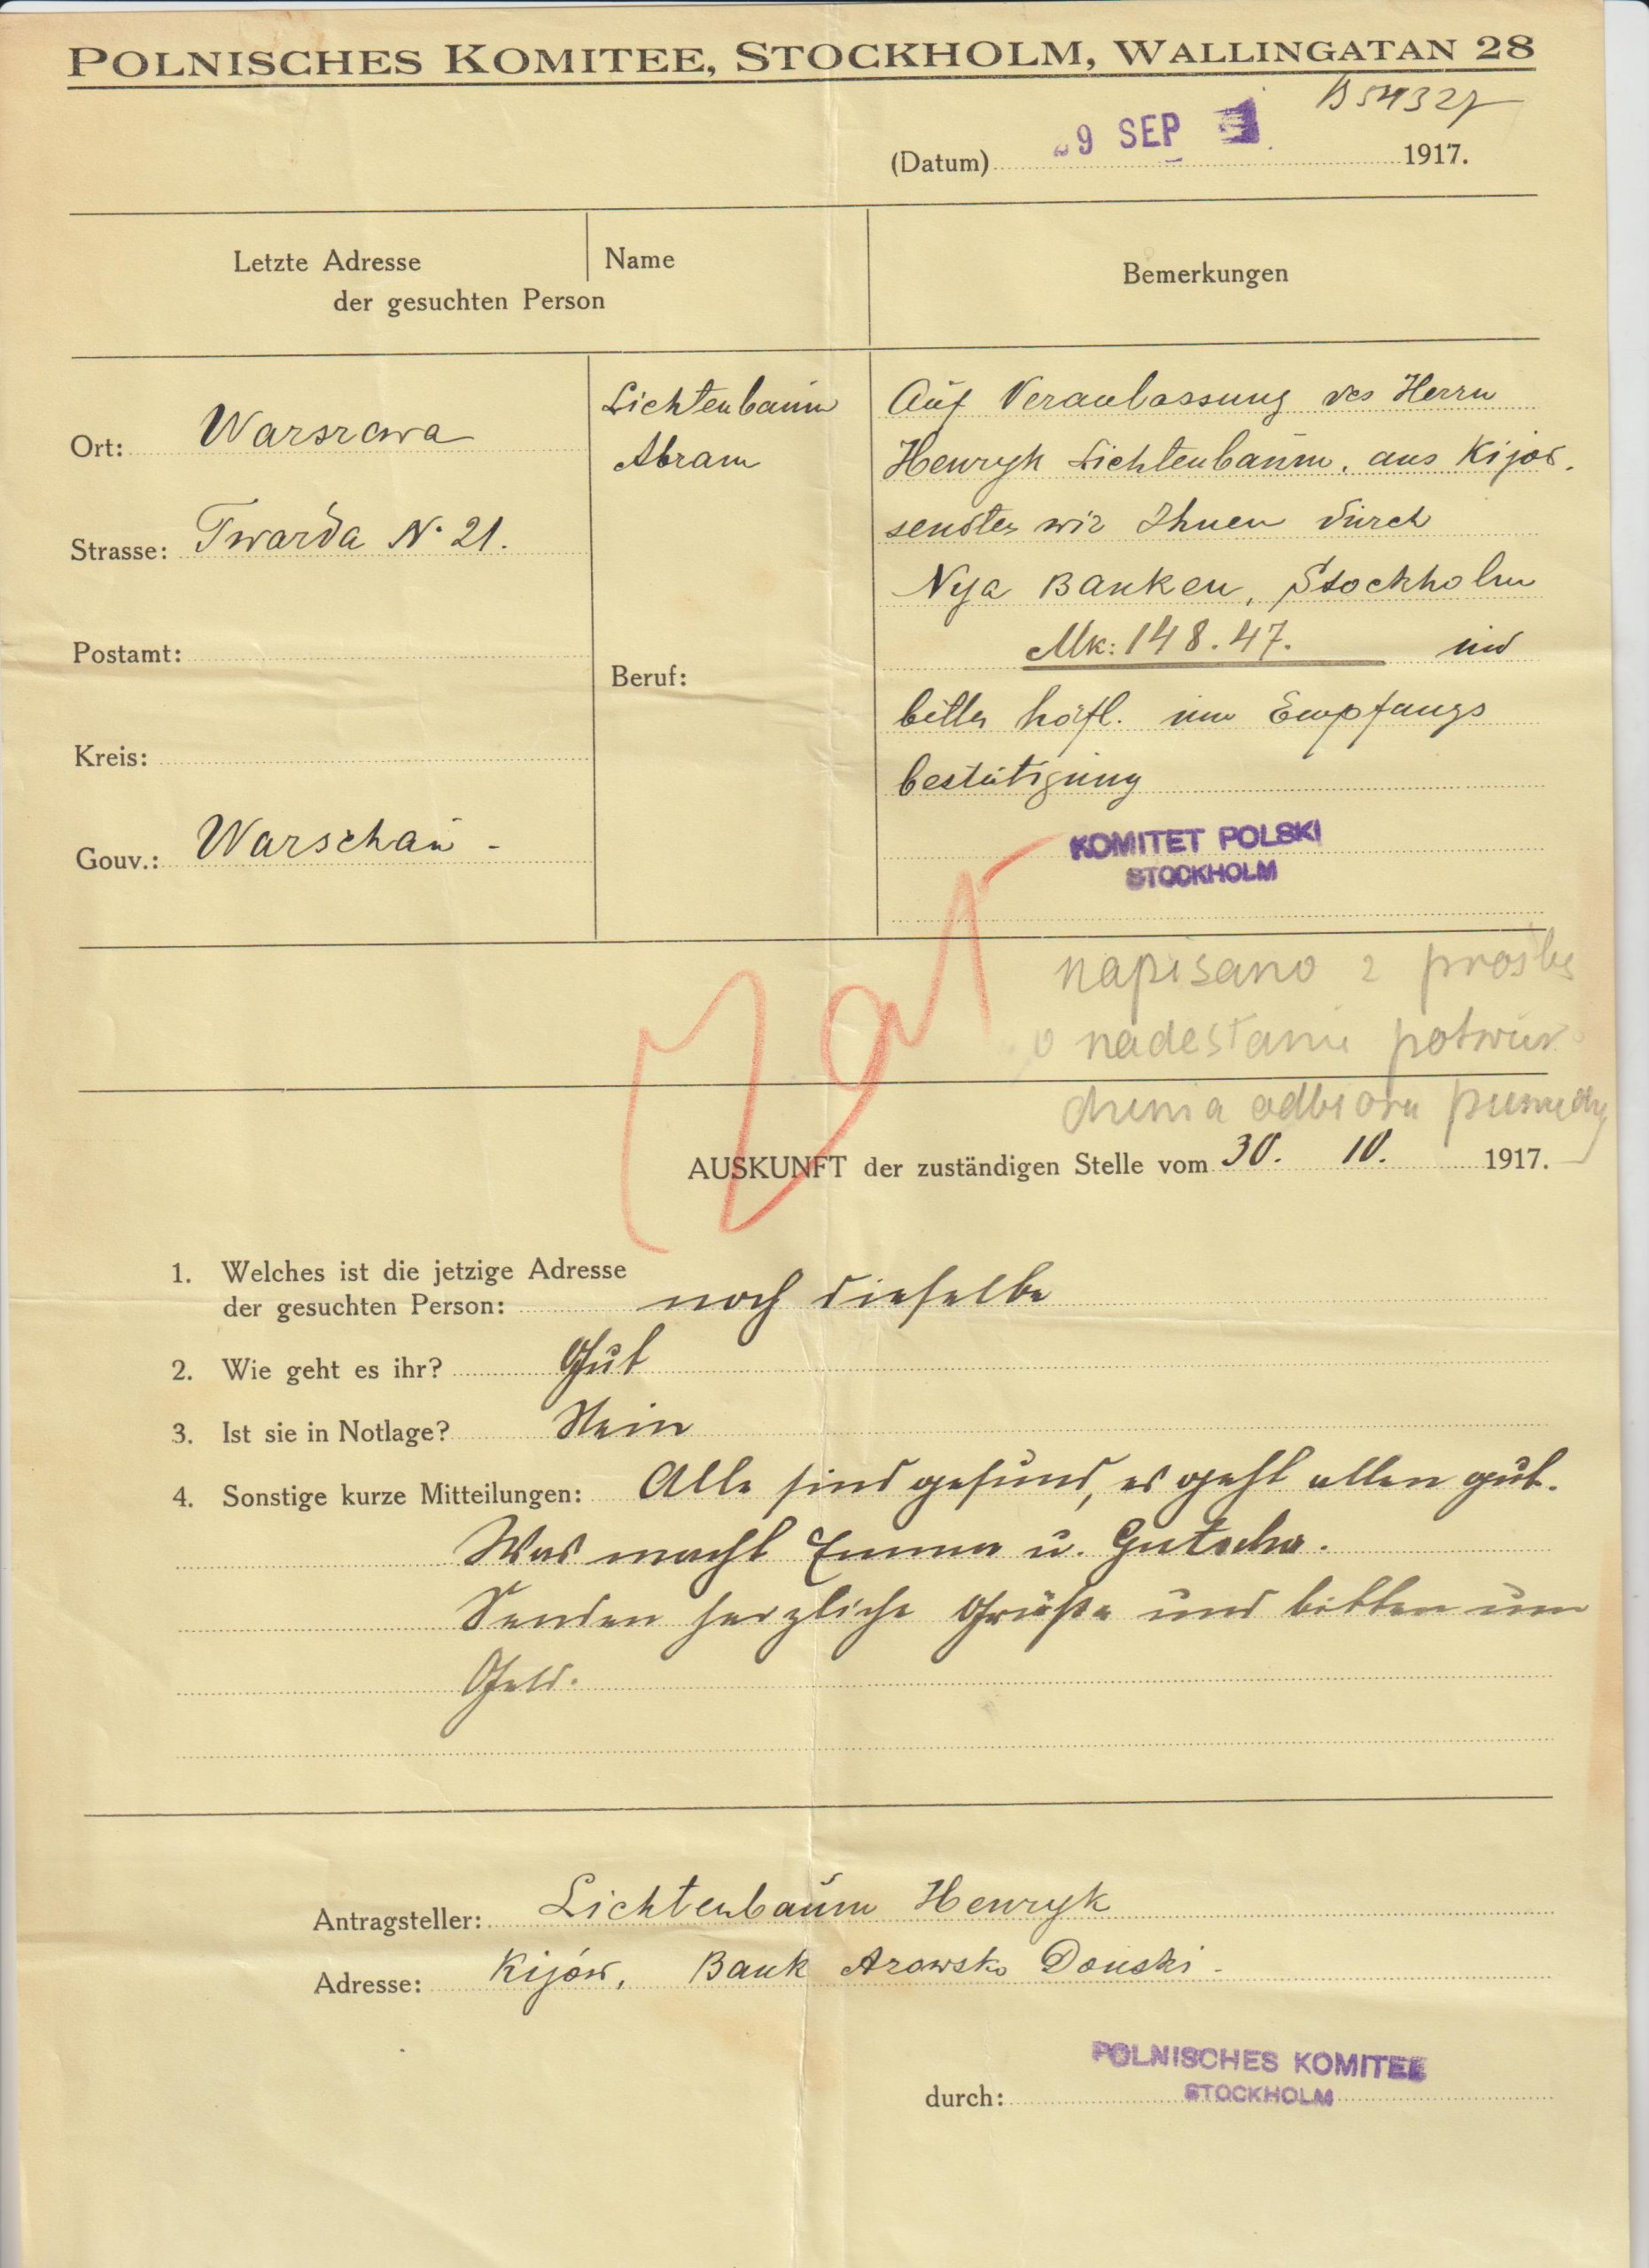 POLNISCHES KOMITEE, STOCKHOLM, WALLINGATAN 28
B 54327
(Datum) 9 SEP 1917.
Letzte Adresse
der gesuchten Person
Name
Bemerkungen
Ort: Warszawa
Strasse: Twarda N. 21.
Postamt:
Kreis:
Gouv.: Warschau -
Lichtenbaum
Abram
Beruf:
Auf Veranlassung des Herrn
Henryk Lichtenbaum, aus Kijów.
sendten wir Ihnen durch
Nya Banken, Stockholm
Mk: 148.47. und
bitten höfl. um Empfangs
bestätigung
KOMITET POLSKI
STOCKHOLM
napisano z prośbą
o nadesłanie potwier
dzenia odbioru pieniędzy
AUSKUNFT der zuständigen Stelle vom 30. 10. 1917.
1. Welches ist die jetzige Adresse
der gesuchten Person: noch dieselbe
2. Wie geht es ihr? Gut
3. Ist sie in Notlage? Nein
4. Sonstige kurze Mitteilungen: Alle sind gesund, es geht allen gut.
Was macht Emma u. Gutscha.
Senden herzliche Grüße und bitten um
Geld.
Antragsteller: Lichtenbaum Henryk
Adresse: Kijów, Bank Azowsko Donski -
POLNISCHES KOMITEE
durch: STOCKHOLM